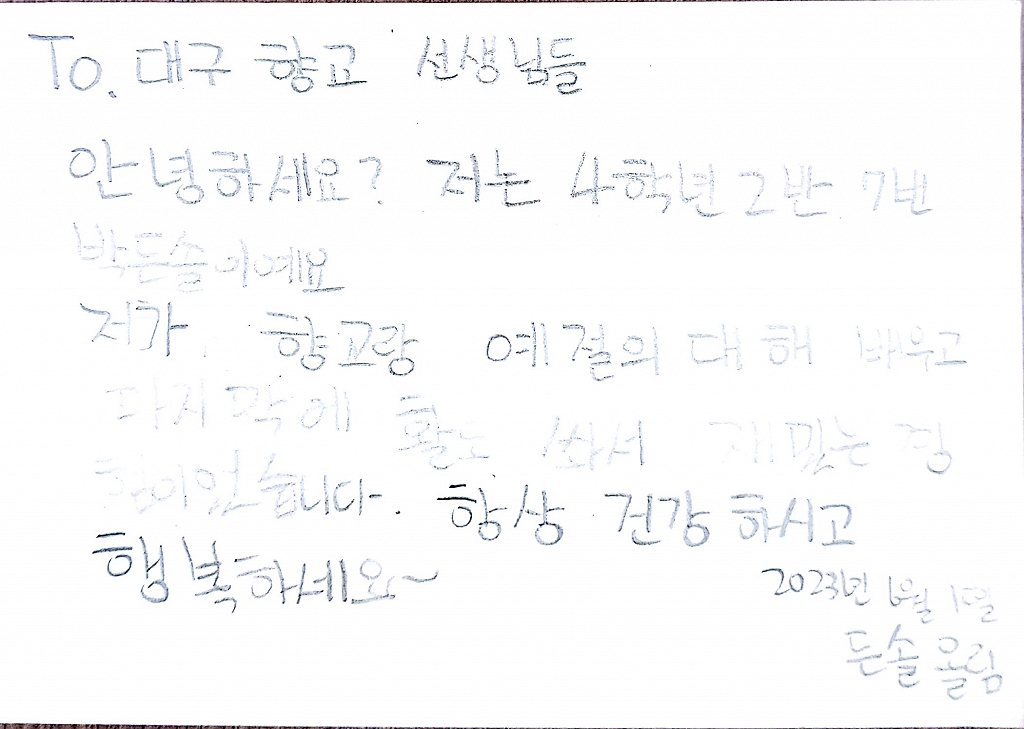 To. 대구 향교 선생님들
안녕하세요? 저는 4학년 2반 7번
박든솔이예요
저가 향교랑 예절의 대해 배우고
다지각에 활도 쏴서 재밌는 경
험이었습니다. 항상 건강하시고
행복하세요~
2023년 6월 1일
든솔 올림